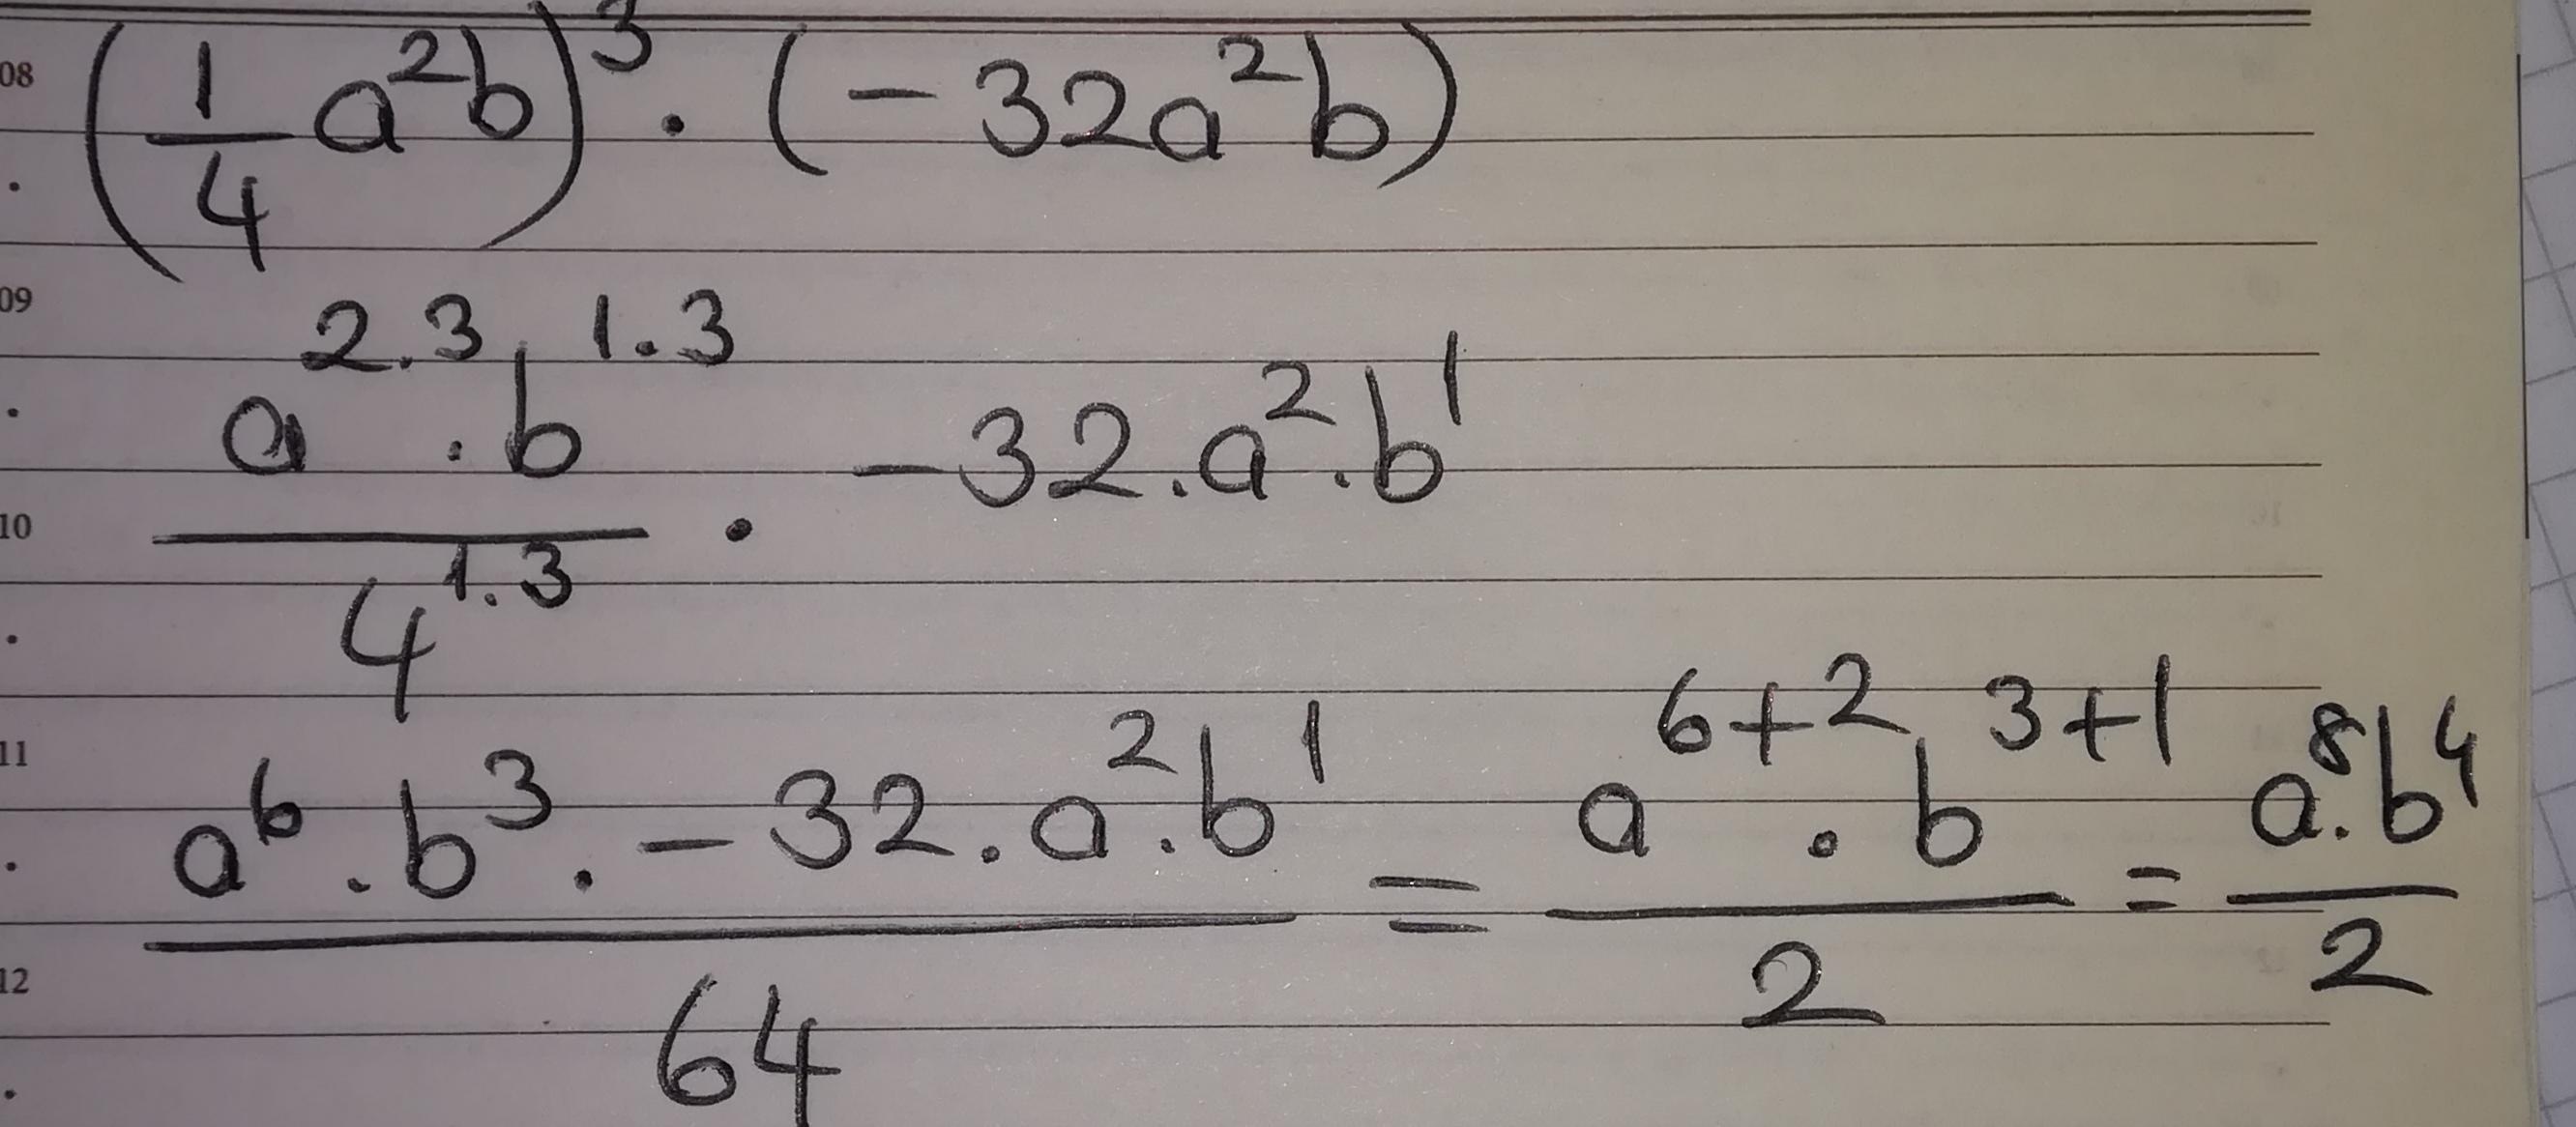 08 (1/4 a²b)³ · (-32a²b)
09 a^{2.3} . b^{1.3}
10 / 4^{1.3} · -32.a².b¹
11 a⁶ . b³ . -32.a².b¹ / 64 = a^{6+2} . b^{3+1} / 2 = a⁸.b⁴ / 2
12